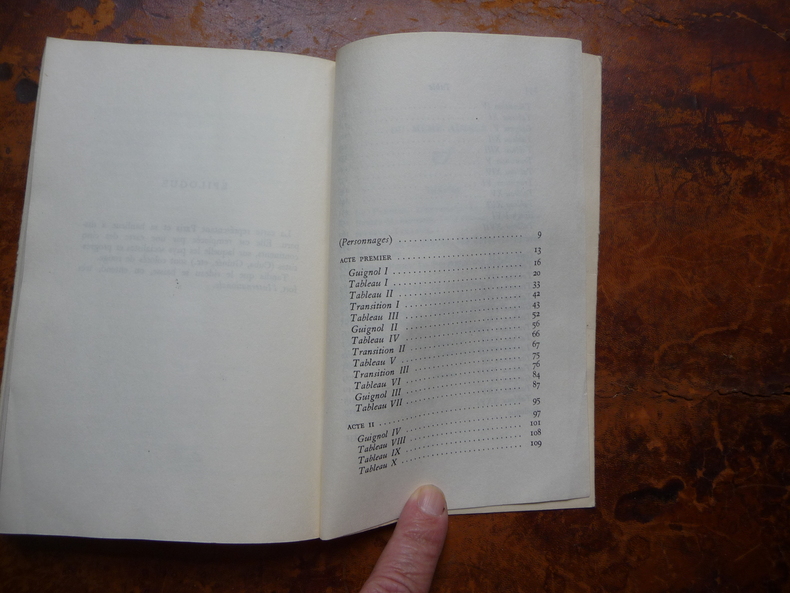 (Personnages) .......................... 9
ACTE PREMIER .......................... 13
Guignol I .......................... 16
Tableau I .......................... 20
Tableau II .......................... 33
Transition I .......................... 42
Tableau III .......................... 43
Guignol II .......................... 52
Tableau IV .......................... 56
Transition II .......................... 66
Tableau V .......................... 67
Transition III .......................... 75
Tableau VI .......................... 76
Guignol III .......................... 84
Tableau VII .......................... 87
ACTE II .......................... 95
Guignol IV .......................... 97
Tableau VIII .......................... 101
Tableau IX .......................... 108
Tableau X .......................... 109